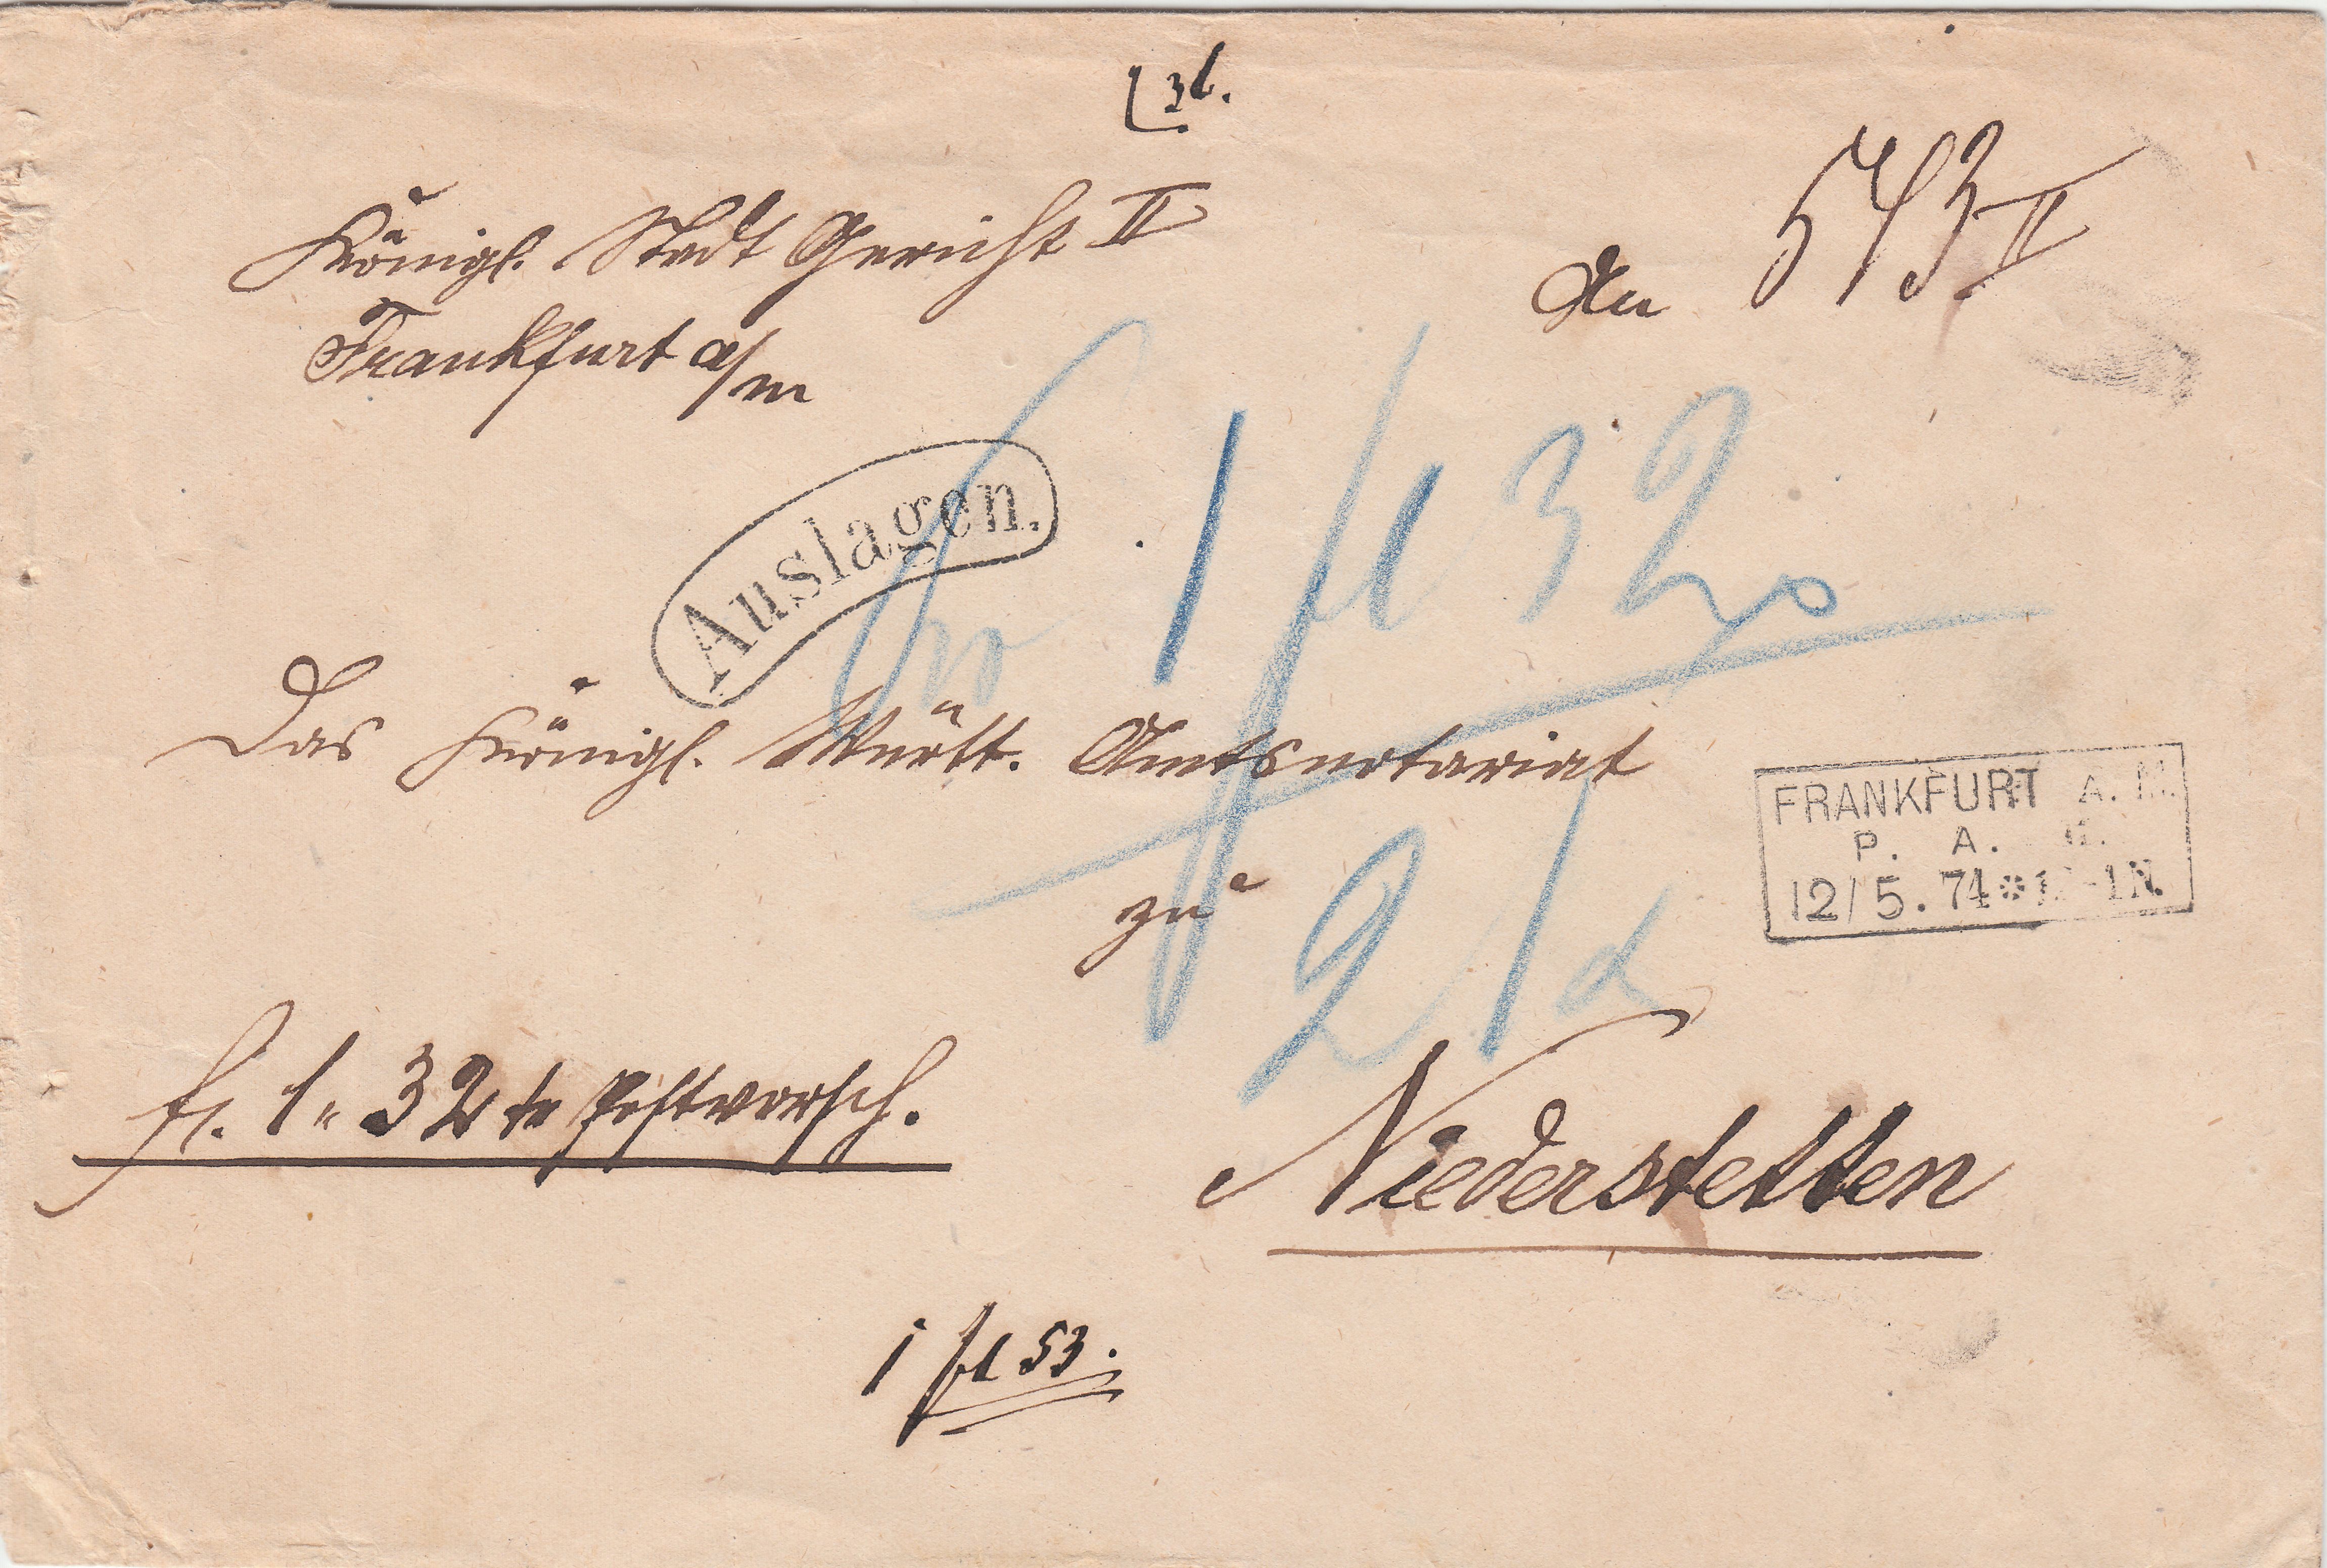 36.
Königl. Stadt Gericht II
Frankfurt a/m
An
II
Auslagen.
1 fl 32
Das Königl. Württ. Amtsnotariat
zu
FRANKFURT A. M.
P. A.
12/5. 74 * 1N.
21
fl. 1 " 32 kr Postvorsch.
Niederstetten
1 fl 53.